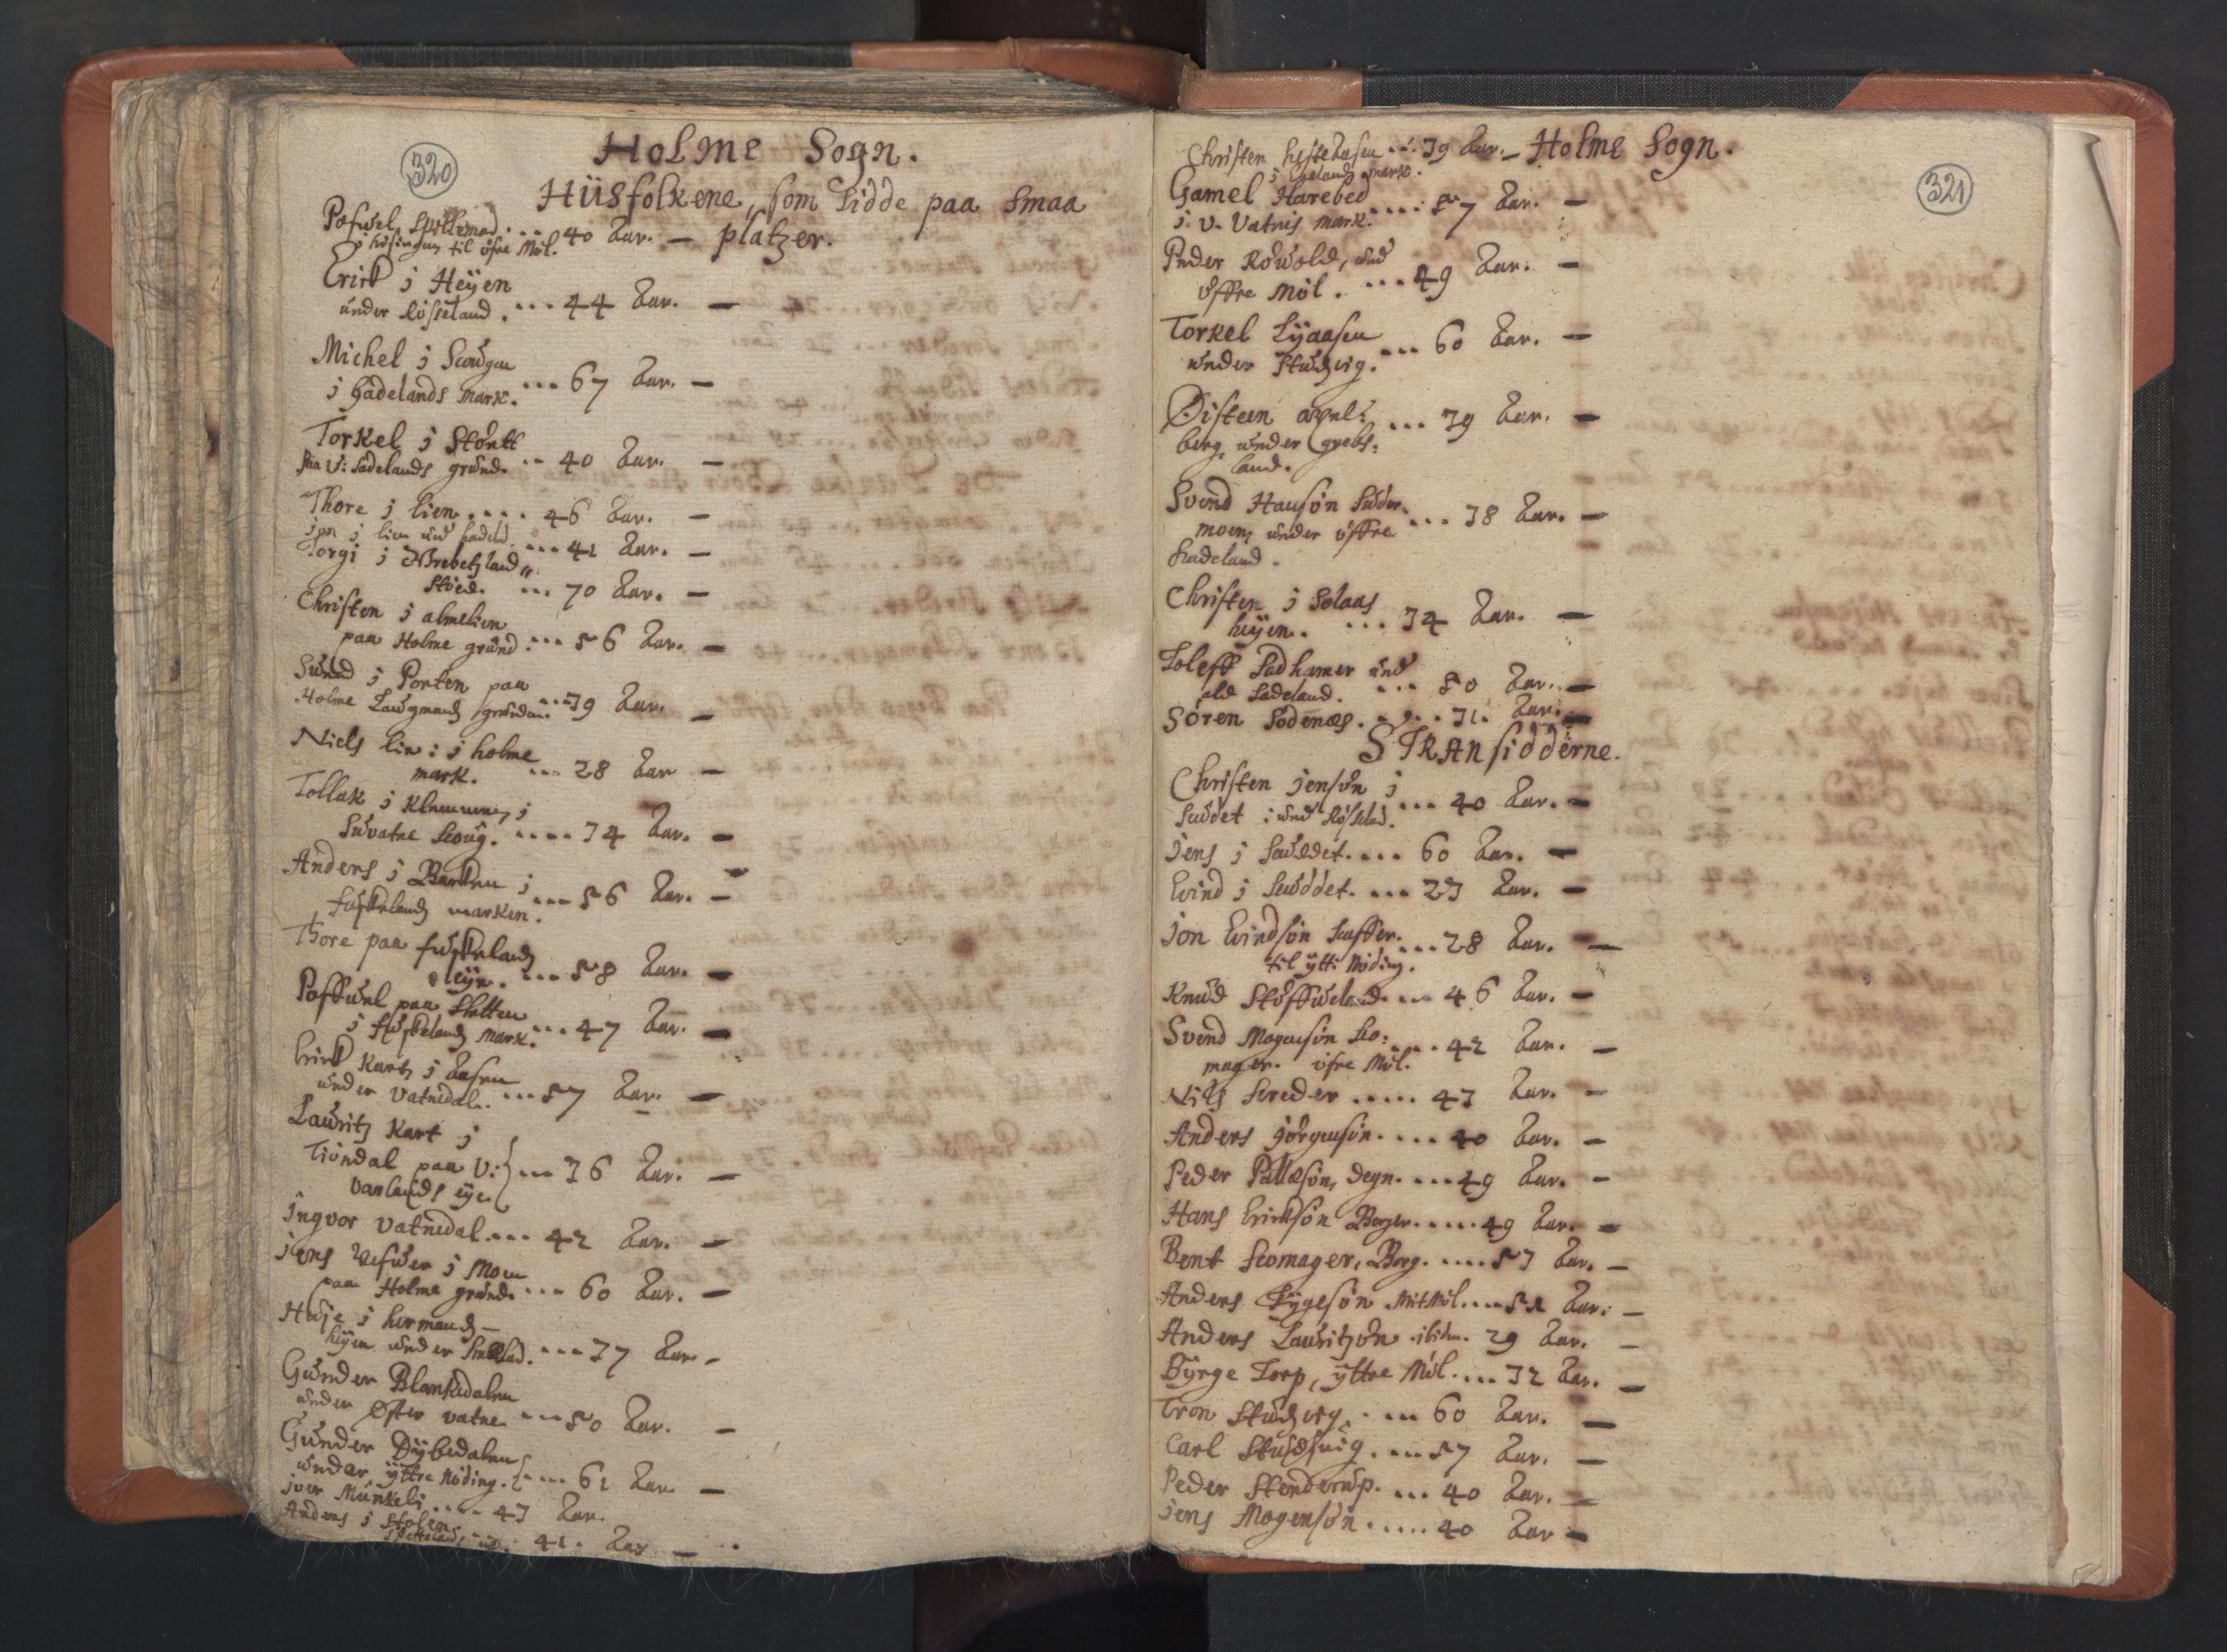 320
Holme Sogn.
Hüsfolkene, som Sidde paa Smaa
platzer.
Pofwel Spillemad ... 40 Aar. —
til öfre Möl.
Erick j Heÿen
under Rösseland. ... 44 Aar. —
Michel j Scowgen
j hadelands mark. ... 67 Aar. —
Torkel j Stöntt
paa V: Sadelands grund. .. 40 Aar. —
Thore j lien .... 46 Aar. —
jon j lien und ... 41 Aar. —
Torgi j Brebetzland
Stöed. ... 70 Aar. —
Christen j almelien
paa Holme grund ... 56 Aar. —
Swend j Porten paa
Holme Lawgmandz grunden ... 39 Aar. —
Niels lin: j holme
mark. ... 28 Aar —
Tollak j Klemmen, j
Suvatne Scoug. .... 34 Aar. —
Anders j Barken j
fuskelandz marken. ... 56 Aar. —
Thore paa fuskelandz
eÿe. ... 58 Aar. —
Poffwel paa Sletten
j fuskelandz mark. ... 47 Aar. —
Erick Kart j Aasen
under Vatnedal. ... 57 Aar. —
Lauritz Kart j
Tiöndal paa V:
Vanlands eÿe. ... 36 Aar. —
Ingvor Vatnedal.... 42 Aar. —
jens Vefwer j Moen
paa Holme grund. ... 60 Aar. —
Hoje j hermandz—
heÿen under ... 37 Aar. —
Gunder Blankedalen
under Öster Vatne ... 50 Aar. —
Gunder Dÿbedalen
under ÿttre Nöding. ... 61 Aar —
jver Munkeli.... 43 Aar.
Anders j Stolen
... 41. Aar —
321
Christen hesteAasen ... 39 Aar. — Holme Sogn.
j mark.
Gamel Harebed
j. V. Vatnis mark. .... 57 Aar. —
Peder Röwold, und
öffre Möl. ... 49 Aar. —
Torkel Lÿaasen
under Studzvig. ... 60 Aar. —
Öisteen
berg under Grebs:
land. ... 39 Aar. —
Svend Hansön Sudder
moen, under öffre
Hadeland. ... 38 Aar. —
Christen j Solaas
heÿen. ... 34 Aar. —
Toleff Sadhamer und
Sadeland. ... 50 Aar. —
Sören Sodenes. .... 31. Aar. —
STRANsidderne.
Christen jensön j
Suddet: und Rösseland. ... 40 Aar. —
Jens j Suddet.... 60 Aar. —
Evind j Suddet. ... 23 Aar. —
Jon Evindsön
til ÿtti Nöding. ... 28 Aar. —
Knud Stöffweland... 46 Aar. —
Svend Mogensön Sco:
mager. öfre Möl. ... 42 Aar. —
Niels Screder ..... 43 Aar. —
Anders jörgensön. ... 40 Aar. —
Peder Pallesön, Degn. ... 49 Aar. —
Hans Ericksön Borger..... 49 Aar. —
Bent Scomager, Borg. .... 53 Aar. —
Anders Tÿgesön MitMöl.... 51 Aar. —
Anders Lauritzön ibidm. 29 Aar. —
Bÿrge Torp, ÿttre Möl.... 32 Aar. —
Tron Studzvig. ... 60 Aar. —
Carl Studsvig. ... 57 Aar. —
Peder Stenderup. ... 40 Aar. —
jens Mogensön..... 40 Aar —